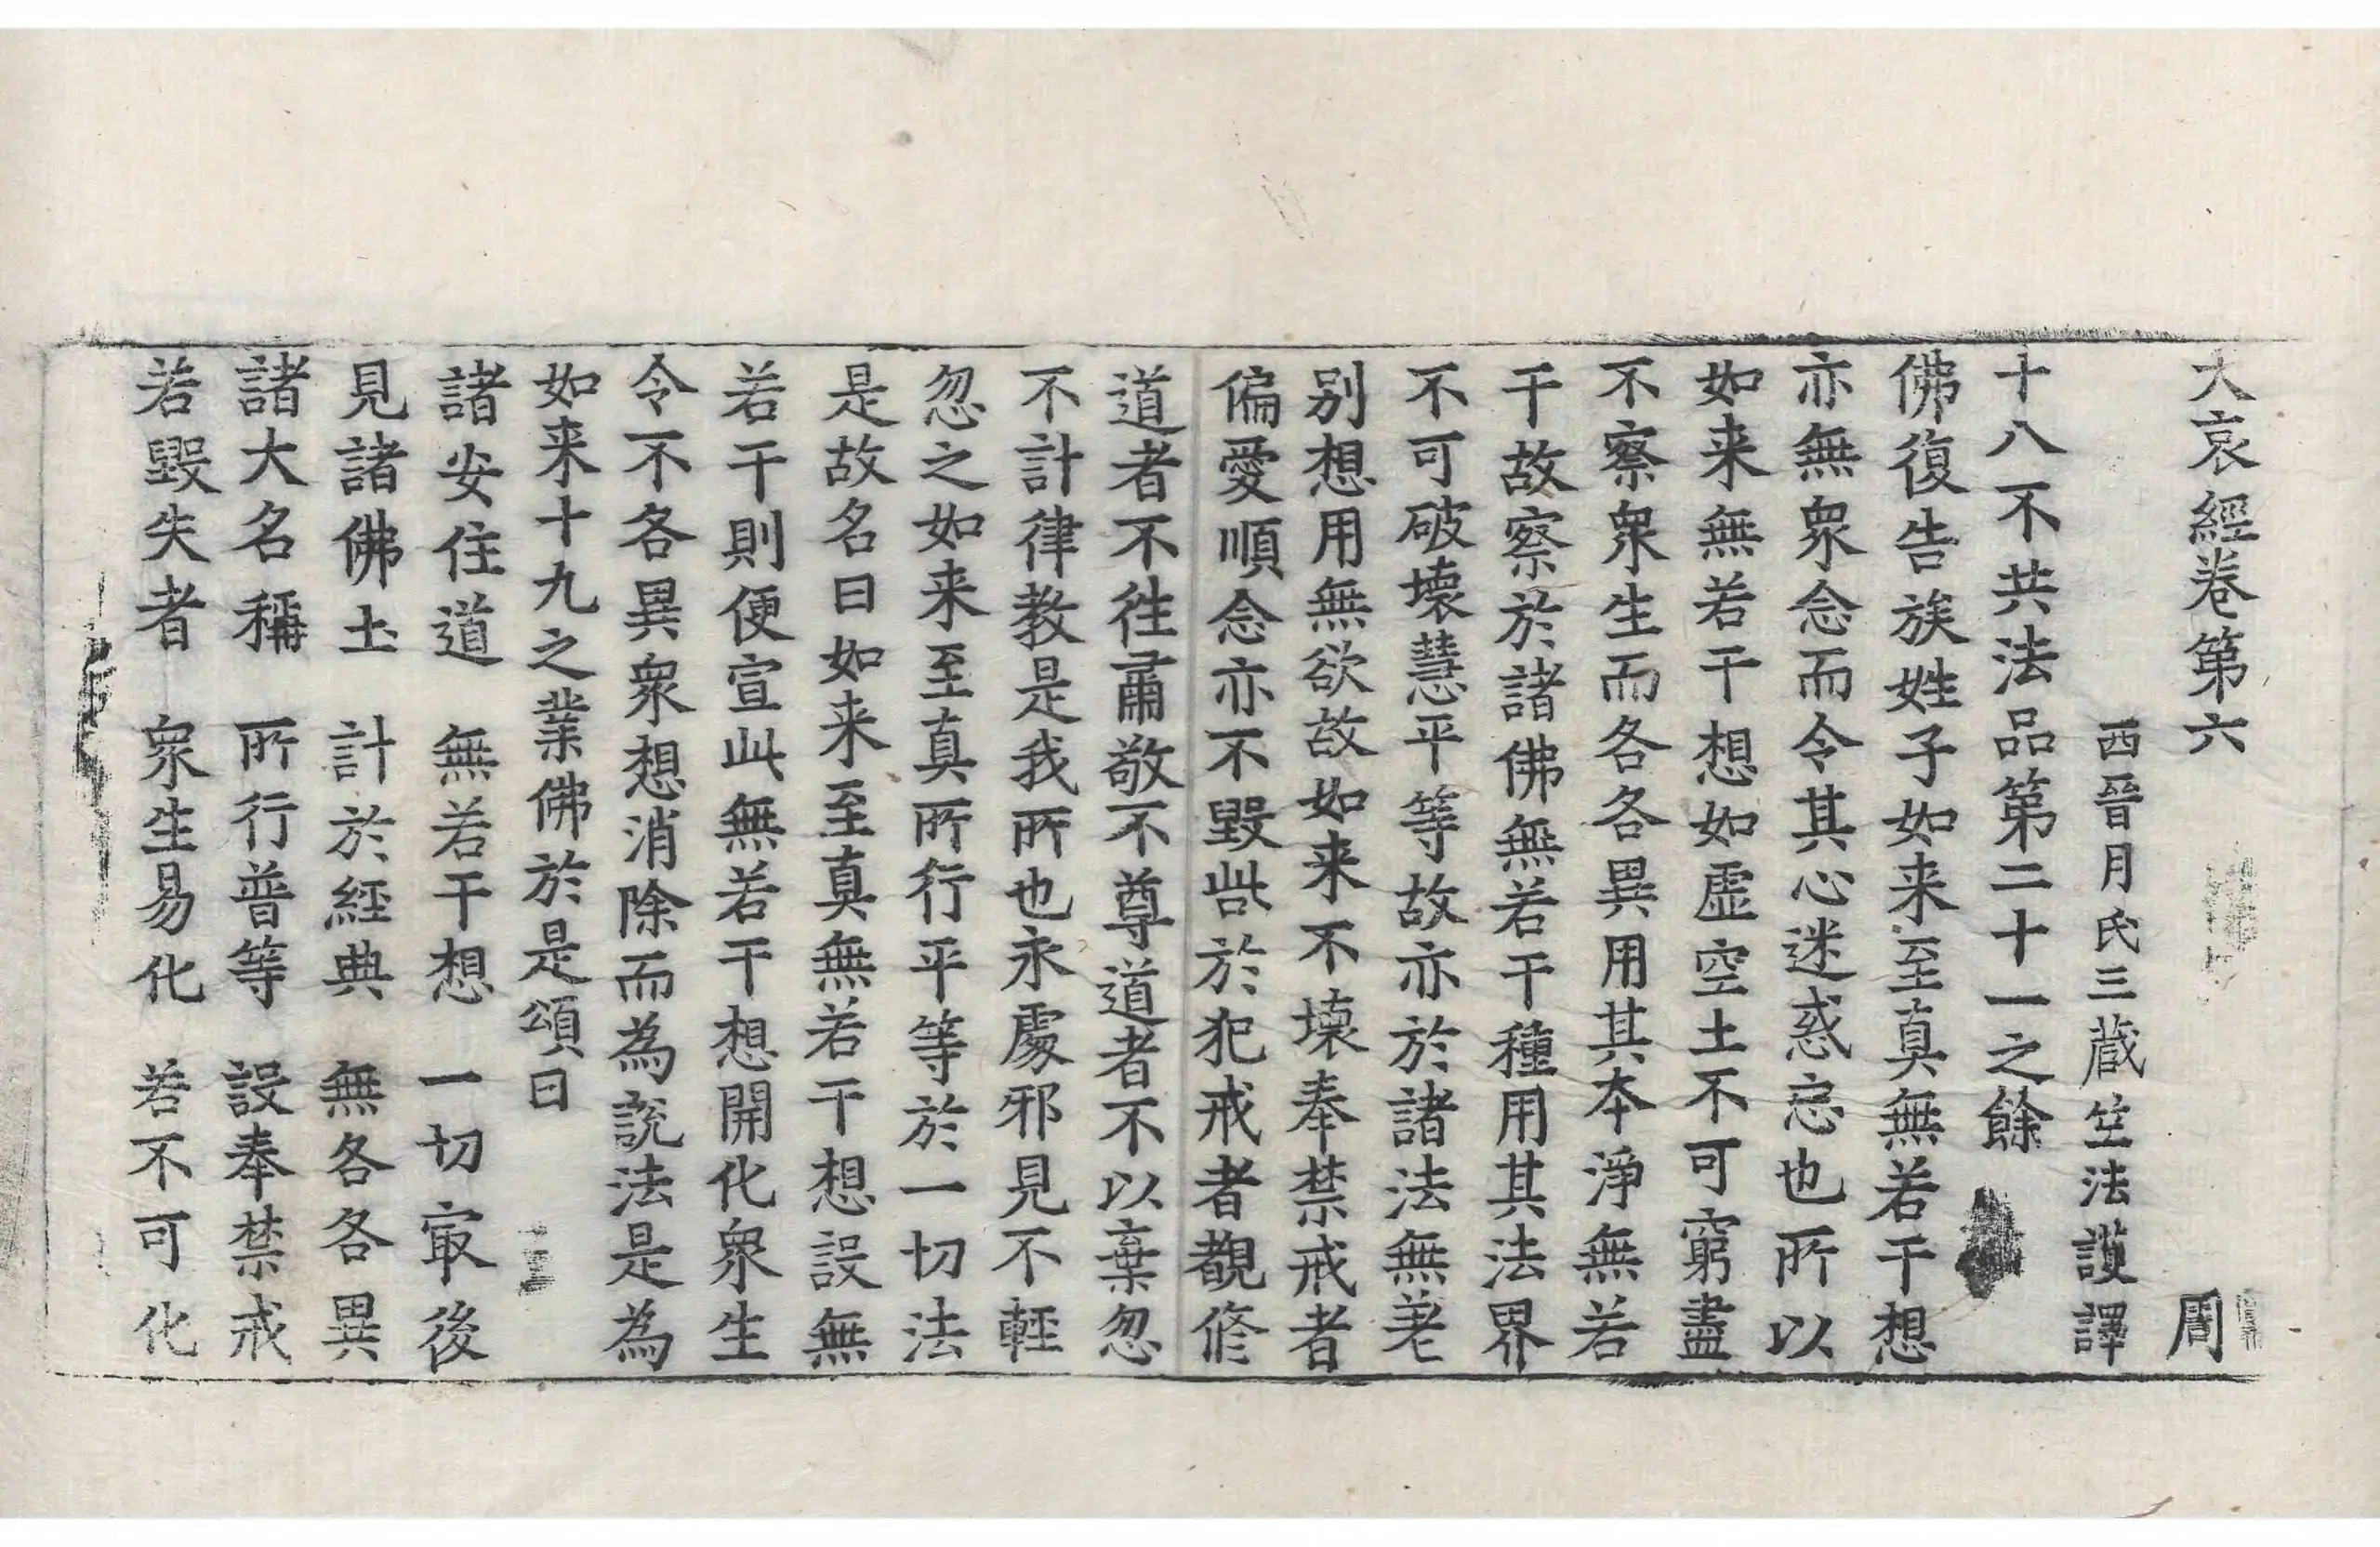 大哀經卷第六 周
西晉月氏三藏竺法護譯
十八不共法品第二十一之餘
佛復告族姓子如来至真無若干想
亦無衆念而令其心迷惑忘也所以
如来無若干想如虛空土不可窮盡
不察衆生而各各異用其本淨無若
干故察於諸佛無若干種用其法界
不可破壞慧平等故亦於諸法無差
别想用無欲故如来不壞奉禁戒者
偏愛順念亦不毀呰於犯戒者覩修
道者不往肅敬不尊道者不以棄忽
不計律教是我所也永處邪見不輕
忽之如来至真所行平等於一切法
是故名曰如来至真無若干想設無
若干則便宣此無若干想開化衆生
令不各異衆想消除而為說法是為
如来十九之業佛於是頌曰
諸安住道 無若干想 一切㝡後
見諸佛土 計於經典 無各各異
諸大名稱 所行普等 設奉禁戒
若毀失者 衆生易化 若不可化